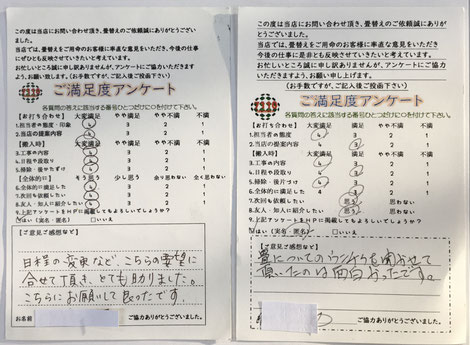 この度は当店にお問い合わせ頂き、畳替えのご依頼誠にありがとうございました。
当店では、畳替えをご用命のお客様に率直な意見をいただき、今後の仕事にぜひとも反映させていきたいと考えています。
お忙しいところ誠に申し訳ありませんが、アンケートにご協力いただけますよう、お願い致します。(お手数ですが、ご記入後ご投函下さい)
ご満足度アンケート
各質問の答えに該当する番号ひとつだけに○を付けて下さい。
【お打ち合わせ】 大変満足 やや満足 やや不満 不満
1.担当者の態度・印象 4 3 2 1
2.当店の提案内容 4 3 2 1
【搬入時】 大変満足 やや満足 やや不満 不満
3.工事の内容 4 3 2 1
4.日程や段取り 4 3 2 1
5.掃除・後かたづけ 4 3 2 1
【全体的に】 そう思う 少し思う
6.全体的に満足した 4 3 2 1
7.次回も依頼したい 4 3 2 1
8.友人・知人に紹介したい 4 3 2 1
9.上記アンケートをHPに掲載してもよろしいでしょうか?
はい(実名・匿名) □いいえ
【ご意見ご感想など】
日程の変更など、こちらの要望に
合せて頂き、とても助りました。
こちらにお願いして良かったです。
お名前
ご協力ありがとうございました。
この度は当店にお問い合わせ頂き、畳替えのご依頼誠にありがとうございました。
当店では、畳替えをご用命のお客様に率直な意見をいただき
今後の仕事に是非とも反映させていきたいと考えています。
お忙しいところ誠に申し訳ありませんが、アンケートにご協力
いただけますよう、お願い申し上げます。
(お手数ですが、ご記入後ご投函下さい)
ご満足度アンケート
各質問の答えに該当する番号ひとつだけに○を付けて下さい。
【お打ち合わせ】 大変満足 満足 やや不満 不満
1.担当者の態度 4 3 2 1
2.当店の提案内容 4 3 2 1
【搬入時】 大変満足 満足 やや不満 不満
3.工事の内容 4 3 2 1
4.日程や段取り 4 3 2 1
5.掃除・後片づけ 4 3 2 1
6.全体的に満足した 4 3 2 1
7.次回も依頼したい 思う 思わない
8.友人・知人に紹介したい 思う 思わない
9.上記アンケートをHPに掲載してもよろしいでしょうか?
はい(実名・匿名) □いいえ
【ご意見ご感想など】
畳についてのウンチクも聞かせて
頂いたのは面白かったです。
ご協力ありがとうございました。